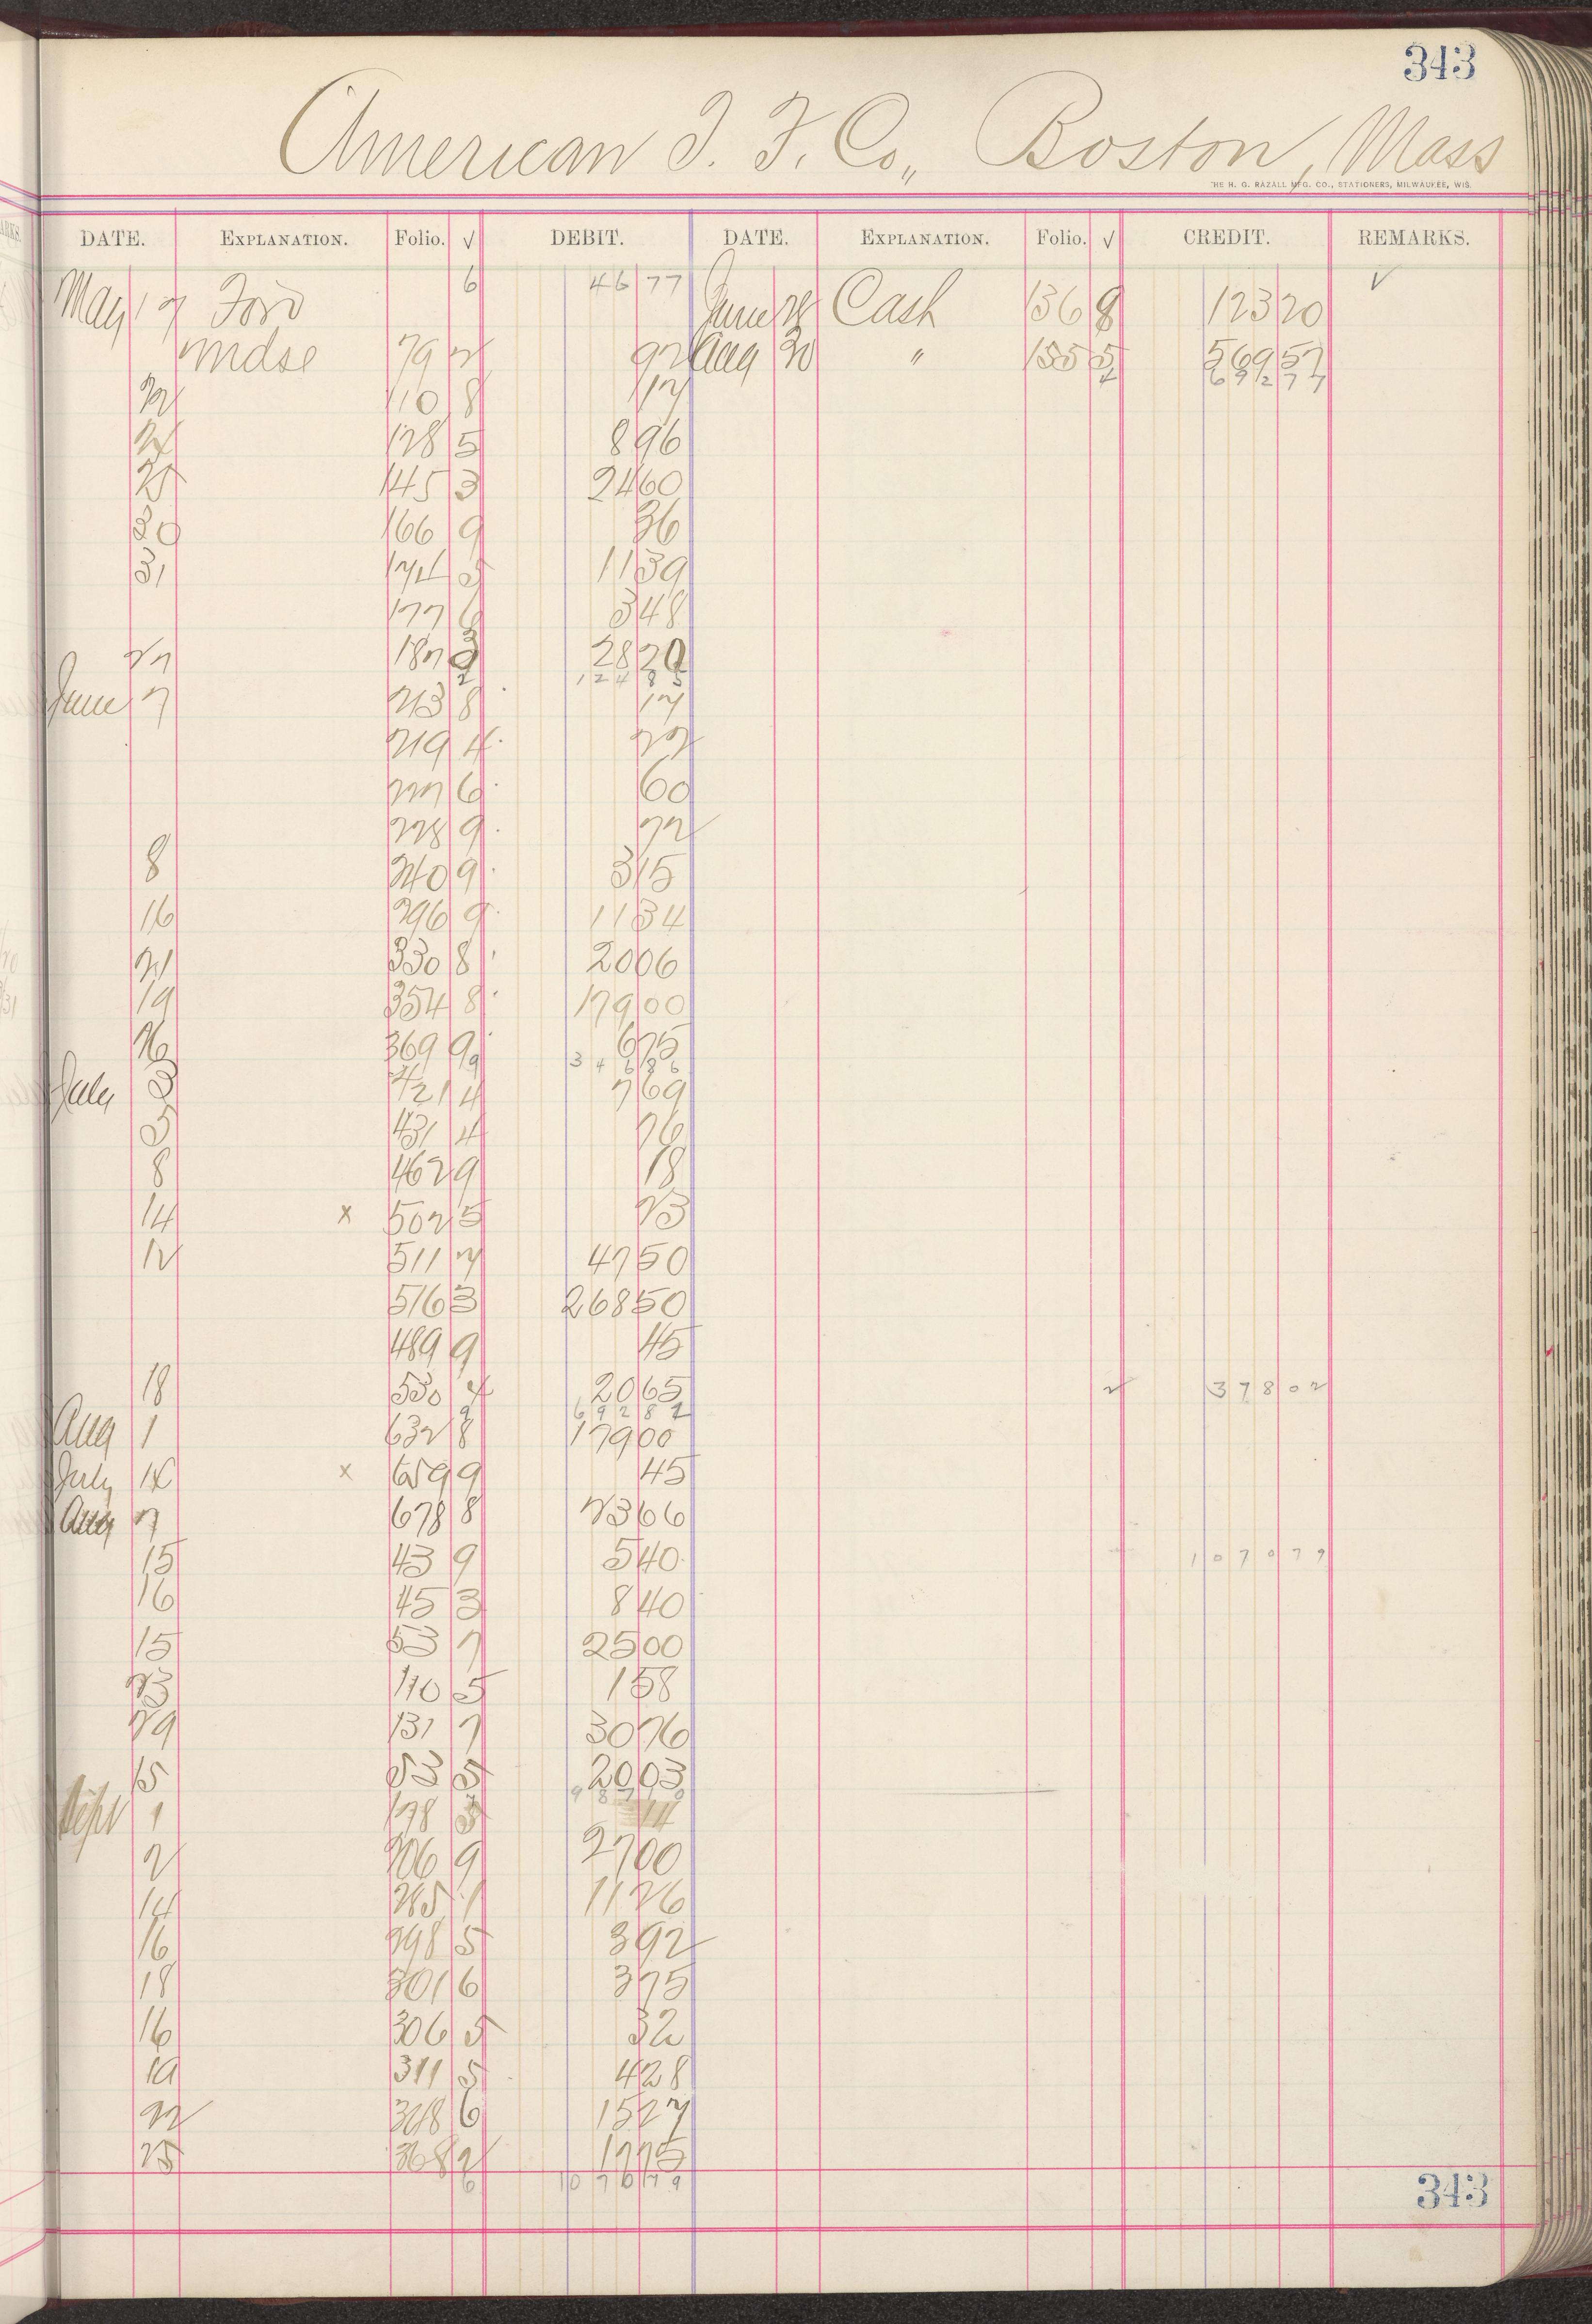 343
American T. F. Co., Boston, Mass
THE H. G. RAZALL MFG. CO., STATIONERS, MILWAUKEE, WIS.
DATE. EXPLANATION. Folio. √ DEBIT. DATE. EXPLANATION. Folio. √ CREDIT. REMARKS.
May 17 Ford 6 46 77 June 28 Cash 136 8 123 20 √
Mdse 79 2 92 Aug 30 " 155 5 569 57
692 77
22 110 8 17
24 128 5 8 96
25 145 3 24 60
30 166 9 36
31 174 5 11 39
177 6 3 48
27 187 3 28 20
124 85
June 7 213 8 17
219 4 22
227 6 60
228 9 72
8 240 9 3 15
16 296 9 11 34
21 330 8 20 06
19 354 8 179 00
26 369 9 6 75
346 86
July 3 421 4 7 69
5 431 4 76
8 462 9 18
14 x 502 5 23
12 511 7 47 50
516 3 268 50
489 9 45
18 530 4 20 65
2 378 02
692 82
Aug 1 632 8 179 00
July 14 x 659 9 45
Aug 7 678 8 23 66
15 43 9 5 40
1070 79
16 45 3 8 40
15 53 7 25 00
23 110 5 1 58
29 131 7 30 76
15 53 5 20 03
987 10
Sept 1 178 3 14
2 206 9 27 00
14 285 1 11 26
16 298 5 3 92
18 301 6 3 75
16 306 5 32
19 311 5 4 28
22 348 6 15 27
25 368 2 17 75
6 1070 79
343